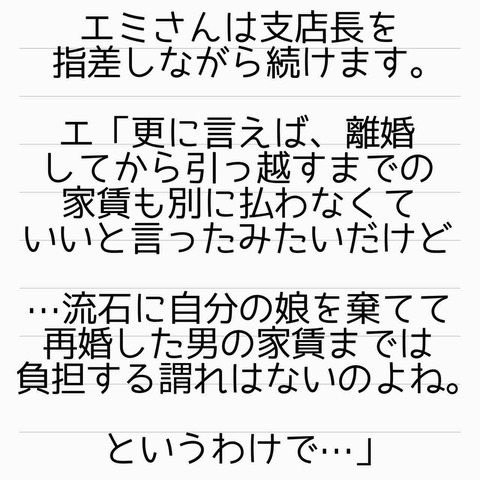 エミさんは支店長を
指差しながら続けます。
エ「更に言えば、離婚
してから引っ越すまでの
家賃も別に払わなくて
いいと言ったみたいだけど
…流石に自分の娘を棄てて
再婚した男の家賃までは
負担する謂れはないのよね。
というわけで…」